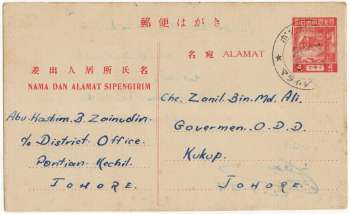 郵便はがき
名宛 ALAMAT
差出人居所氏名
NAMA DAN ALAMAT SIPENGIRIM
Che. Zanil Bin. Md. Ali.
Govermen. O.D.D.
Kukup.
JOHORE.
Abu Hashim. B. Zainudin.
c/o District Office.
Pontian Kechil.
JOHORE.